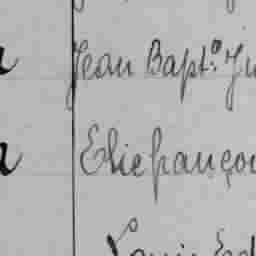 Jean Bapt.e Ju
Elie françoi
Louis Ed